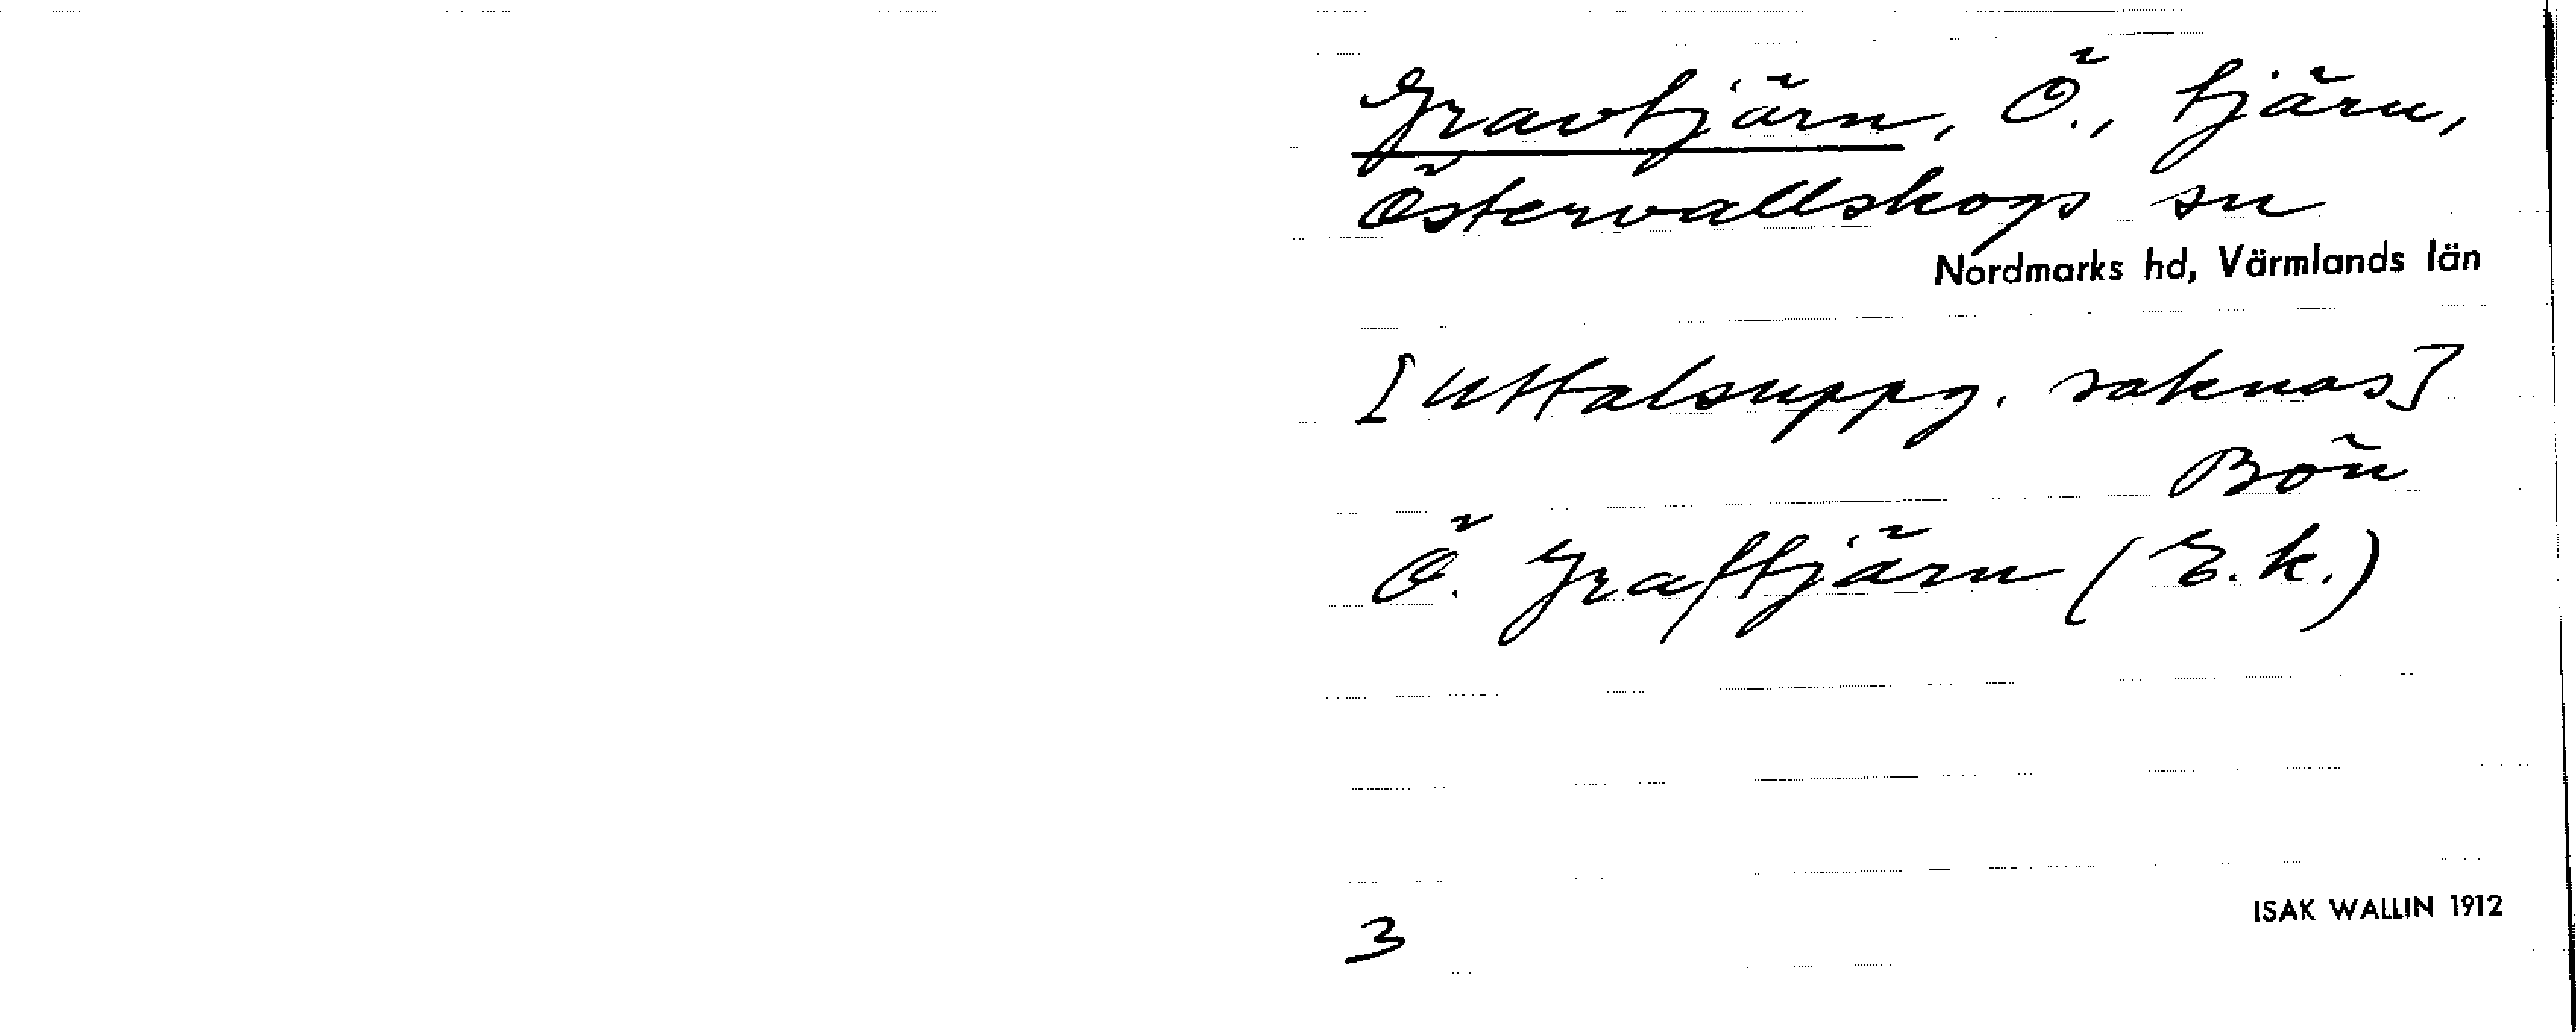 Gravtjärn, Ö., tjärn,
Östervallskogs sn
Nordmarks hd, Värmlands län
[Uttalsuppg. saknas]
Bön
Ö. Graftjärn (E.k.)
3
ISAK WALLIN 1912